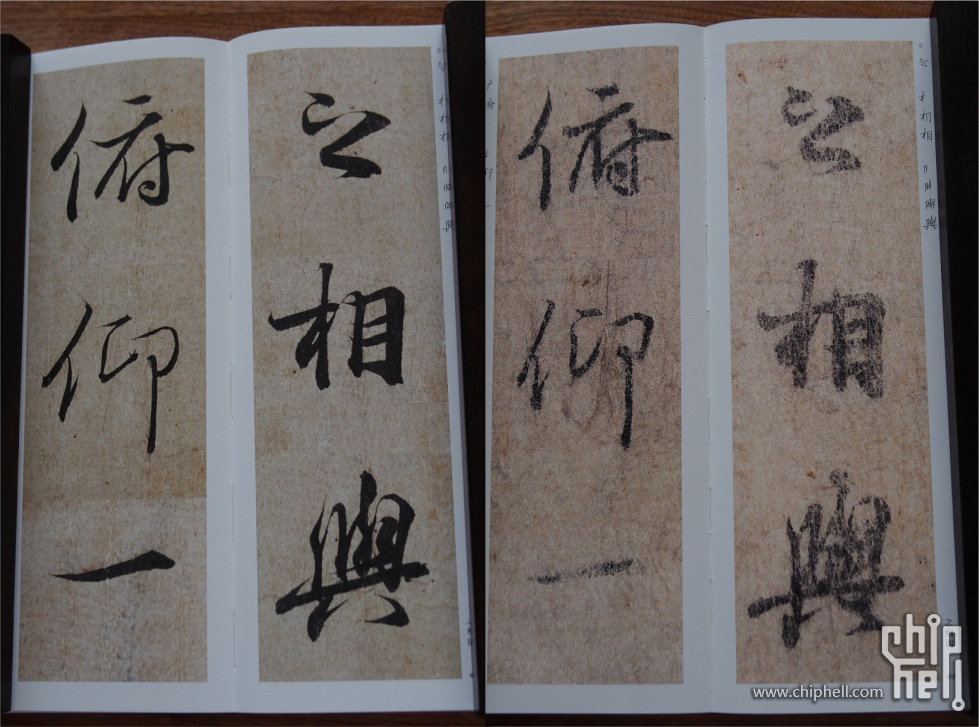 之相與
俯仰一
之相與
俯仰一
chip
hell
www.chiphell.com